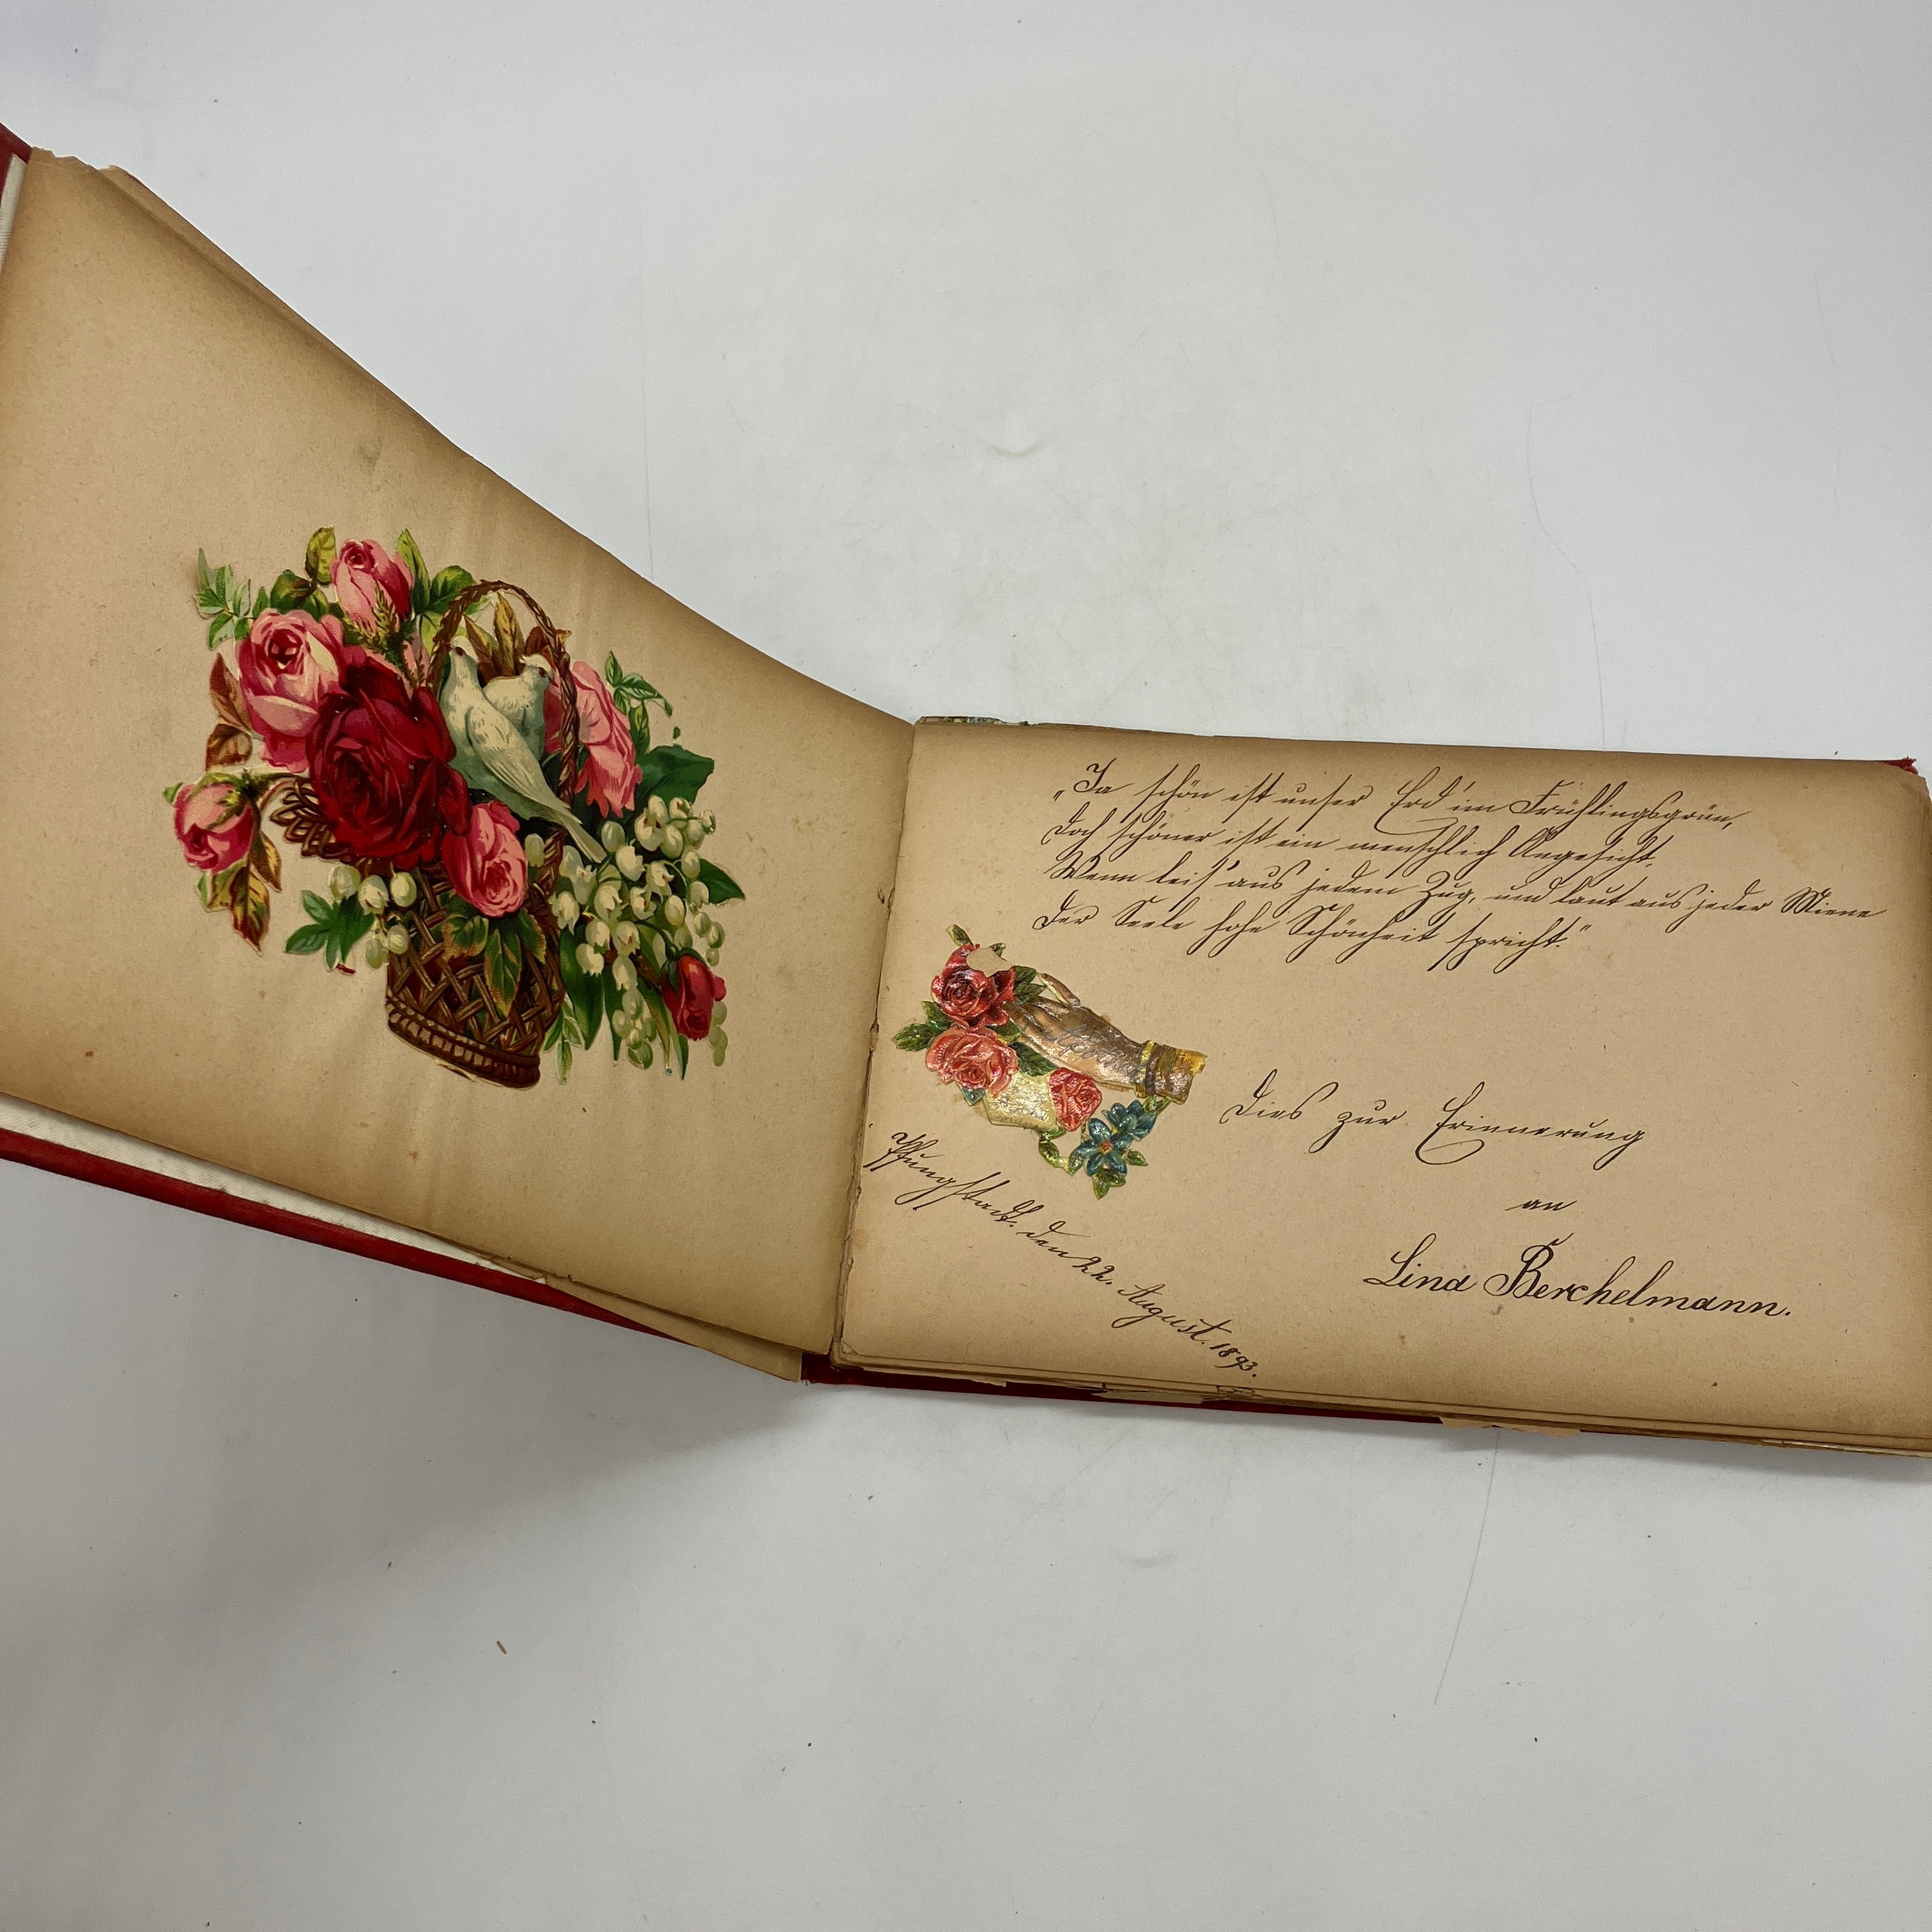 „Ja schön ist unser Erd' im Frühlingsgrün,
Doch schöner ist ein menschlich Angesicht,
Wenn leis' aus jedem Zug, und laut aus jeder Miene
Der Seele hohe Schönheit spricht."
Dies zur Erinnerung
an
Lina Berchelmann.
Pfungstadt. den 22. August. 1893.